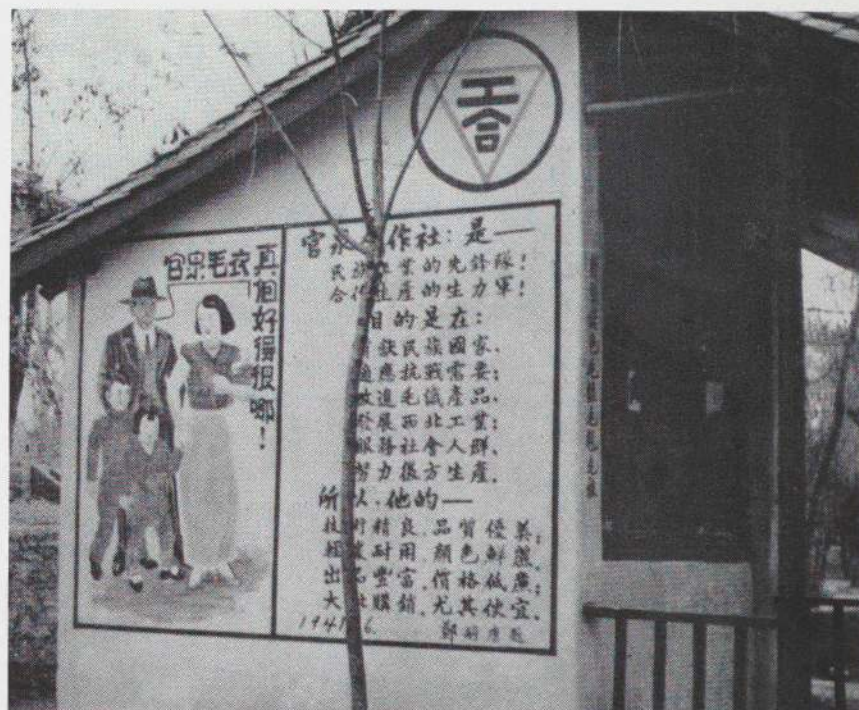 工合
官泉毛衣
真個好得很哪!
官泉合作社:是——
民族工業的先鋒隊!
合作生產的生力軍!
目的是在:
貢獻民族國家、
適應抗戰需要;
改進毛織產品、
發展西北工業;
服務社會人群、
努力後方生產.
所以,他的——
技術精良、品質優美;
耐用、顏色鮮麗、
出品豐富、價格低廉;
大批購銷、尤其便宜.
1941.6. 鄭